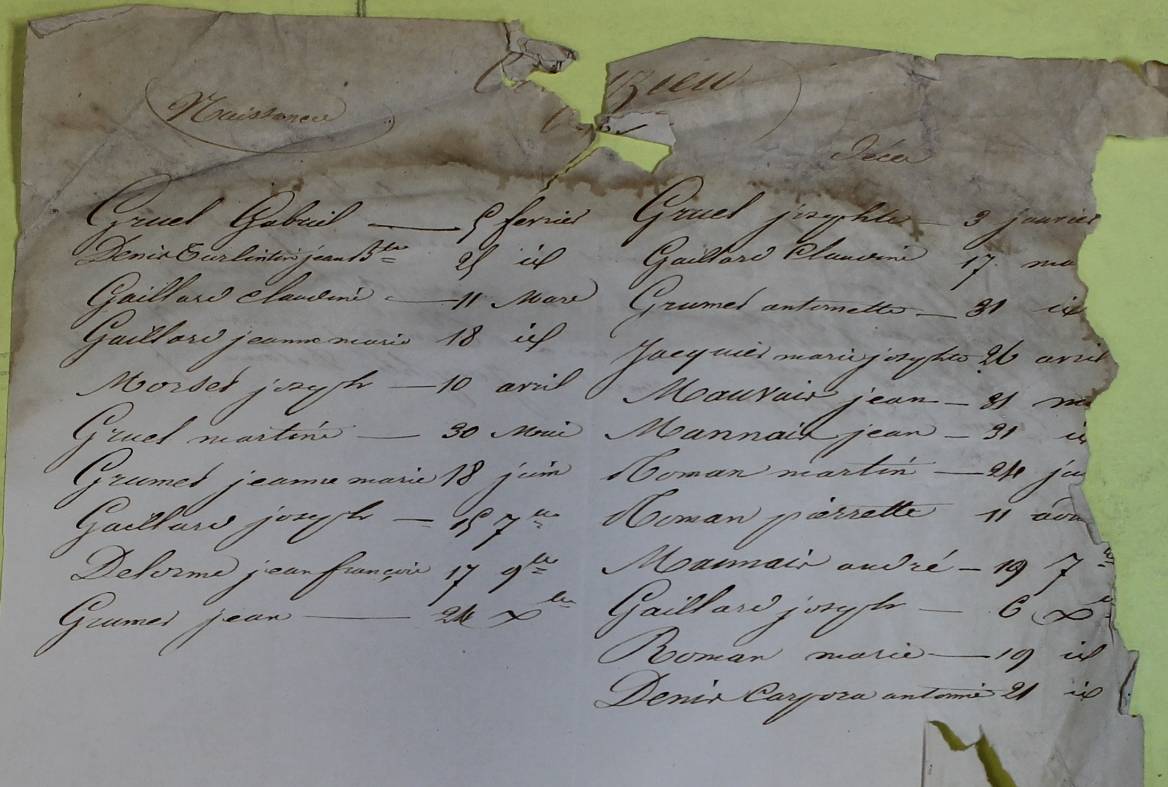 Naissance
Décès
Gruel Gabriel — 5 fevrier
Denis jean Bte 25 id
Gaillard claudine — 11 Mars
Gaillard jeanne marie 18 id
Morsel joseph — 10 avril
Gruel martine — 30 Mai
Grumel jeanne marie 18 juin
Gaillard joseph — 15 7bre
Delorme jean françois 17 9bre
Grumel jean — 24 xbre
Gruel josephte — 3 janvier
Gaillard Claudine 17
Grumel antoinette — 31 id
Jacquier marie josephte 26 avril
Mauvais jean — 31
Mannais jean — 31
Roman martin — 24
Roman pierrette 11 aou
Maunais andré — 19 7
Gaillard joseph — 6 x
Roman marie — 19 id
Denis Carpora antoine 21 id